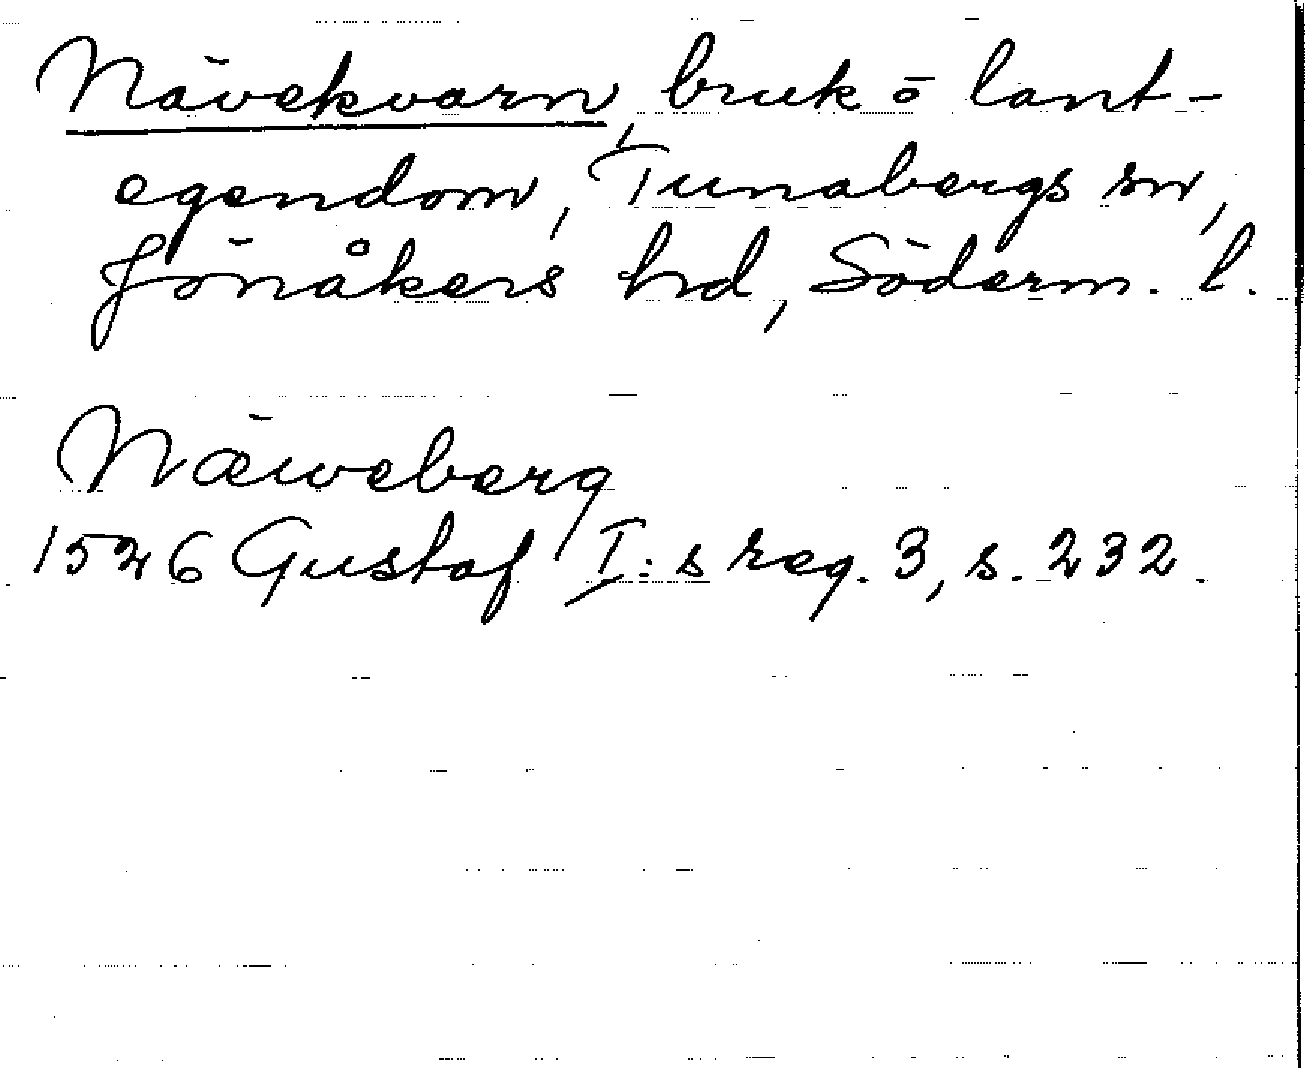 Nävekvarn, bruk o lant-
egendom, Tunabergs sn,
Jönåkers hd, Söderm. l.
Näweberg
1526 Gustaf I:s reg. 3, s. 232.